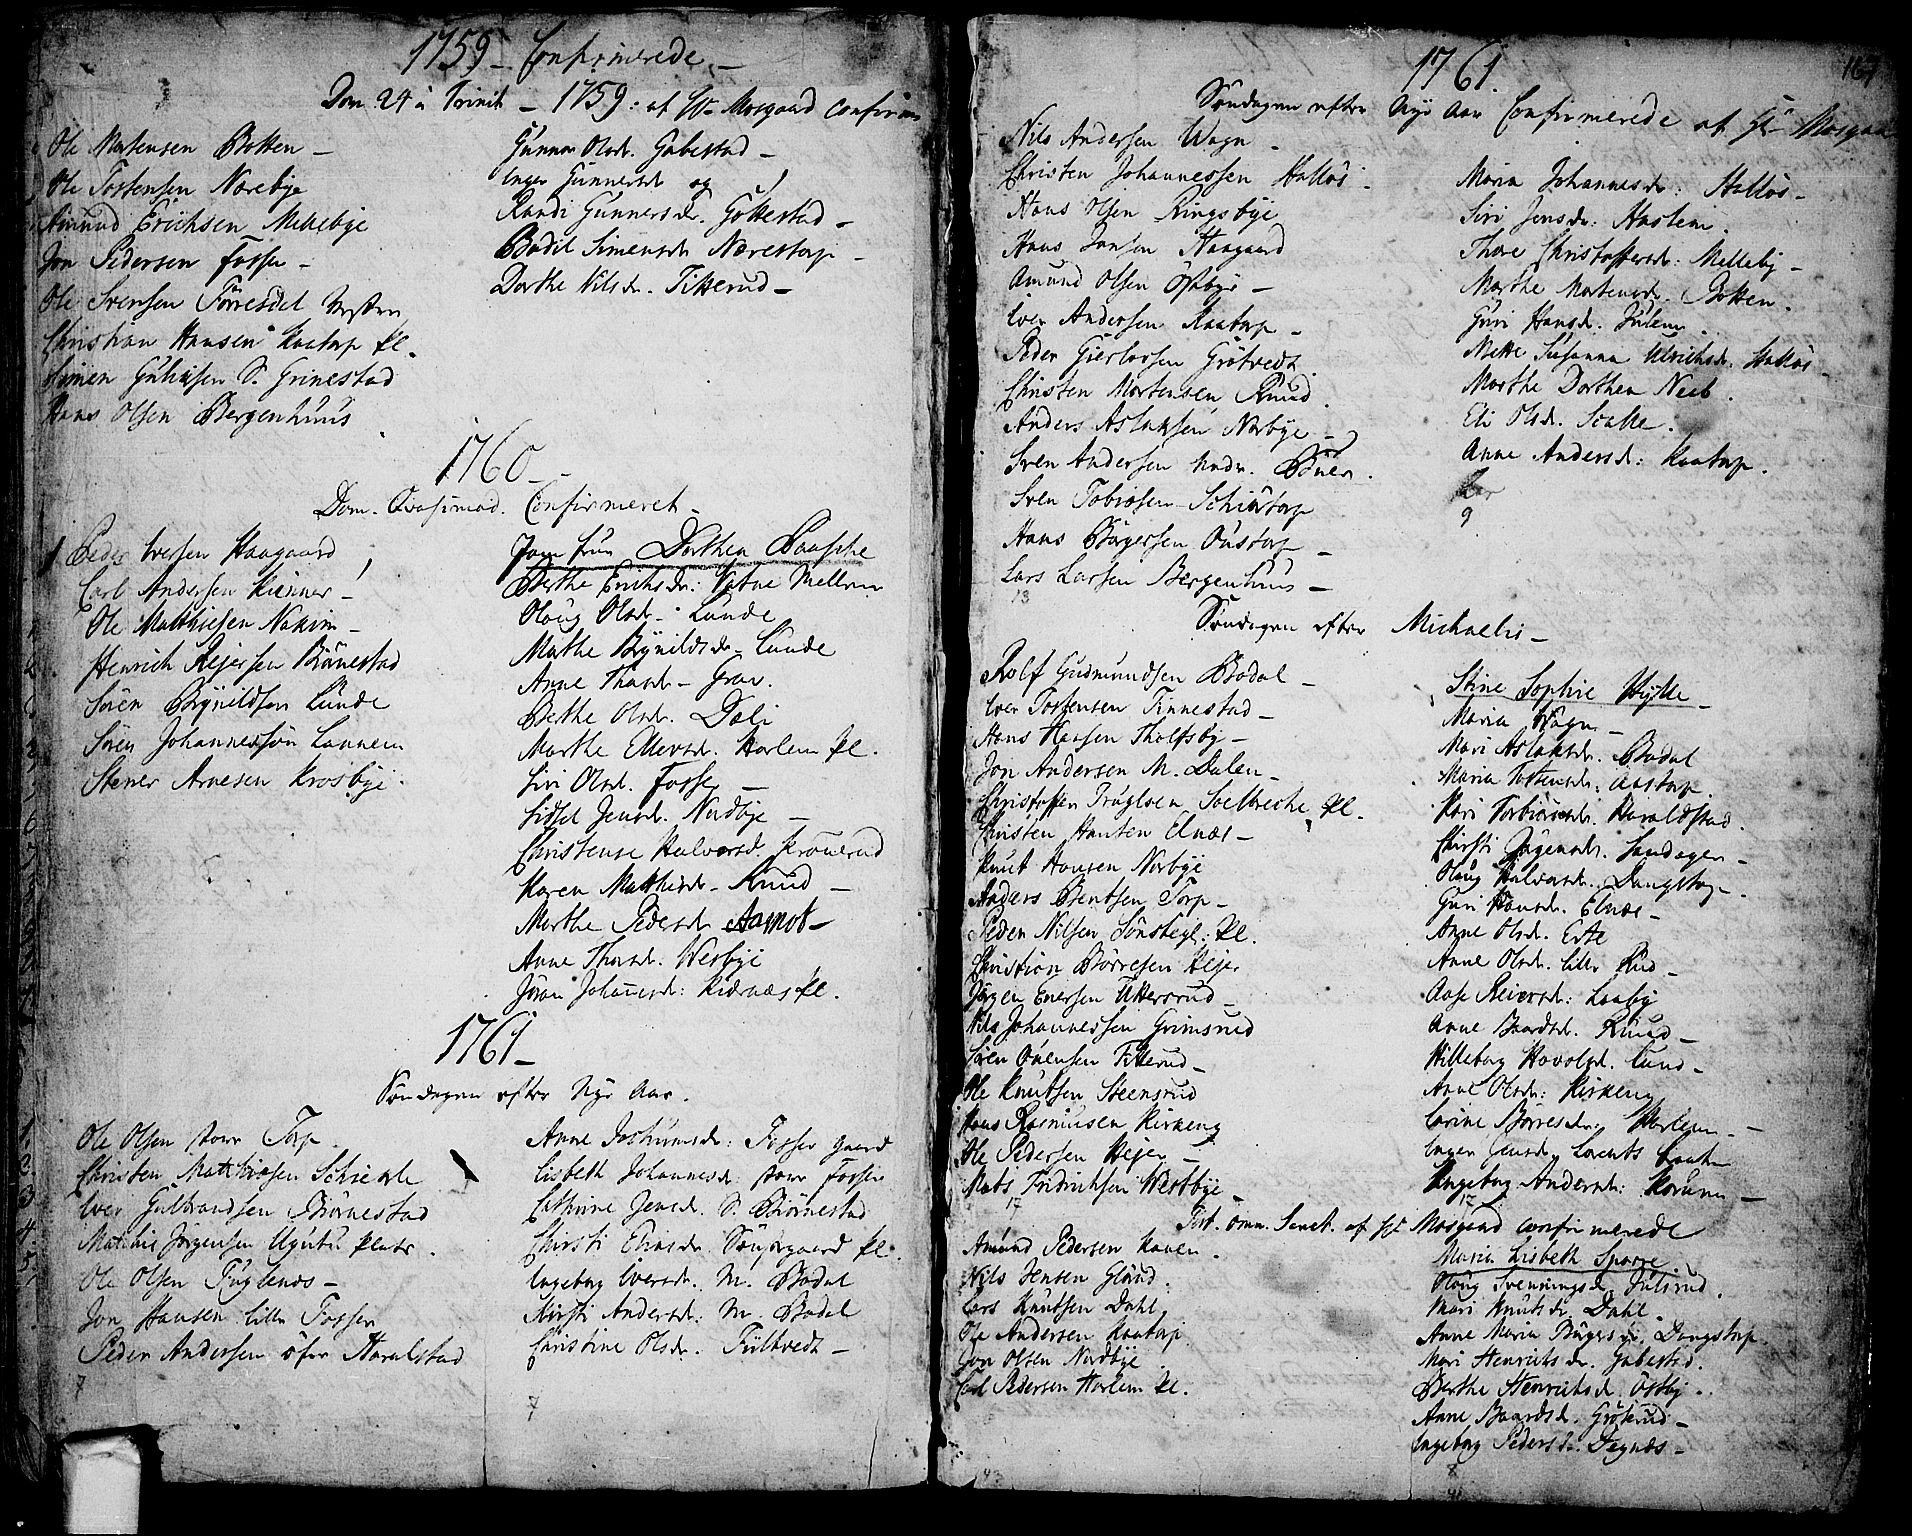 1759 - Confirmerede -
Dom 24 a Trinit - 1759: at Hr Mosgaard confirm
Ole Mortensen Botten -
Ole Tostensen Norebye
Amund Erichsen Mellebye
Jon Pedersen Fosse -
Ole Svensen Torresdel
Christian Hansen Kaatorp Pl.
Simen S. Grinestad
Hans Olsen Bergenhuus
Gunner Olsdr. Gabestad -
Inger Gunnersdr og
Randi Gunnersdr. Gottestad -
Bodil Simensdr Norestorp -
Dorthe Nilsdr. Tikkerud -
1760 -
Dom. Qvasimod. Confirmeret -
1 Peder Iversen Haagaard
Carl Andersen Kinner -
Ole Matthiesen Nakim -
Henrich Rejersen Biørnestad
Søren Brynildsen Lunde
Søren Johannessøn Lannem
Stener Arnesen Krosbye.
Jomfru Dorthea Paasche
Berthe Erichsdr: Vatne Mellem
Oloug Olsdr - Lunde
Marthe Brynildsdr - Lunde
Anne Thorsdr - Grav.
Berthe Olsdr. Dæli
Marthe Ellevsdr. Harlem Pl.
Siri Olsdr. Fosse -
Sidsel Jensdr. Nordbye -
Christense Halvorsd Krouerud
Karen Matthisdr - Ruud -
Marthe Pedersdr Aamot -
Anne Thorsdr. Wesbye
Jøran Johannesdr: Kidenæs Pl.
1761 -
Søndagen efter Nye Aar.
1. Ole Olsen store Torp.
2. Christen Matthiesen
3. Iver Gulbrandsen Biørnestad
4. Mathis Jørgensen Platz.
5. Ole Olsen Fuglenæs -
Jon Hansen lille Fosser
Peder Andersen øfre Haralstad
7
Anne Jochumsdr: Fosser gaard
Lisbeth Johannesdr: store Fosser
Cathrine Jensdr. S. Biørnestad
Chirsti Eliasdr. Pl.
Ingeborg Iversdr. M. Bodal
Kirsti Andersdr. M. Bodal
Christine Olsdr. Tultvedt -
7
167
1761.
Søndagen efter Nye Aar Confirmerede at Hr Mosgaa
Nils Andersen Wogn -
Christen Johannessen Halløs -
Hans Olsen Ringsbye
Hans Jonsen Haagaard
Amund Olsen Østbye -
Iver Andersen Kaatorp -
Peder Gierlovsen Grøtvedt
Christen Mortensen Ruud.
Anders Aslaksen Norbye -
Sven Andersen nedr. Buer.
Sven Tobiasen - Schiørtorp
Hans Børgersen Oustorp -
Lars Larsen Bergenhuus -
13
Maria Johannesdr: Halløs -
Siri Jensdr: Haslem.
Thore Christoffersdr: Melleby -
Marthe Mortensdr. Botten.
Guri Hansdr. Julem.
Mette Susanna Ulrichsdr. Halløs -
Marthe Dorthea Neeb.
Eli Olsdr. Scalle.
Anne Andersdr: Kaatorp.
9
Søndagen efter Michaelis -
Rolf Gudmundsen Bodal -
Iver Tostensen Finnestad -
Hans Hansen Tholfsby -
Jon Andersen M. Dalen -
Christoffer Truglsen Soelbreche Pl.
Christen Hansen Elnæs -
Knut Hansen Norbye
Anders Bentsen Torp -
Peder Nilsen Pl.
Christian Børresen Hejer
Jørgen Enersen Ukkersrud -
Nils Johannessen Grimsrud
Søren Ovensen Tikkerud -
Ole Knutsen Steensrud
Hans Rasmussen Kirkeng
Ole Pedersen Hejer -
Mats Fridrichsen Westbye -
17
Stine Sophie Hylle -
Maria Wogn -
Mari Aslaksdr. Bodal
Maria Tostensdr. Aastorp.
Kari Torbiørnsdr. Haraldstad.
Chirsti Jørgensdr. Sandager -
Oloug Halvorsdr. Dangstorp -
Guri Hansdr. Elnæs -
Anne Olsdr. Erte
Anne Olsdr. lille Rud -
Aase Reiersdr: Laaby
Anne Baardsdr. Ruud -
Hilleborg Havolsdr. Lund -
Anne Olsdr: Kirkeng
Karine Børresdr: Harlem -
Inger Jensdr Lorents
Ingeborg Andersdr: -
17
Fest. omn. Sanct. af Hr Mosgaard confirmerede
Amund Pedersen Haven.
Nils Jensen Glaud.
Lars Knutsen Dahl.
Ole Andersen Kaatorp.
Jon Olsen Nordbye.
Carl Pedersen Harlem Pl.
Maria Lisbeth Sparre
Oloug Svenningsdr Julsrud.
Mari Knutsdr. Dahl.
Anne Maria Børgersdr. Dangstorp
Mari Henrichsdr. Gabestad.
Berthe Henrichsdr. Østby.
Anne Baardsdr. Grøterud -
Ingeborg Pedersdr. Tegnæs -
8